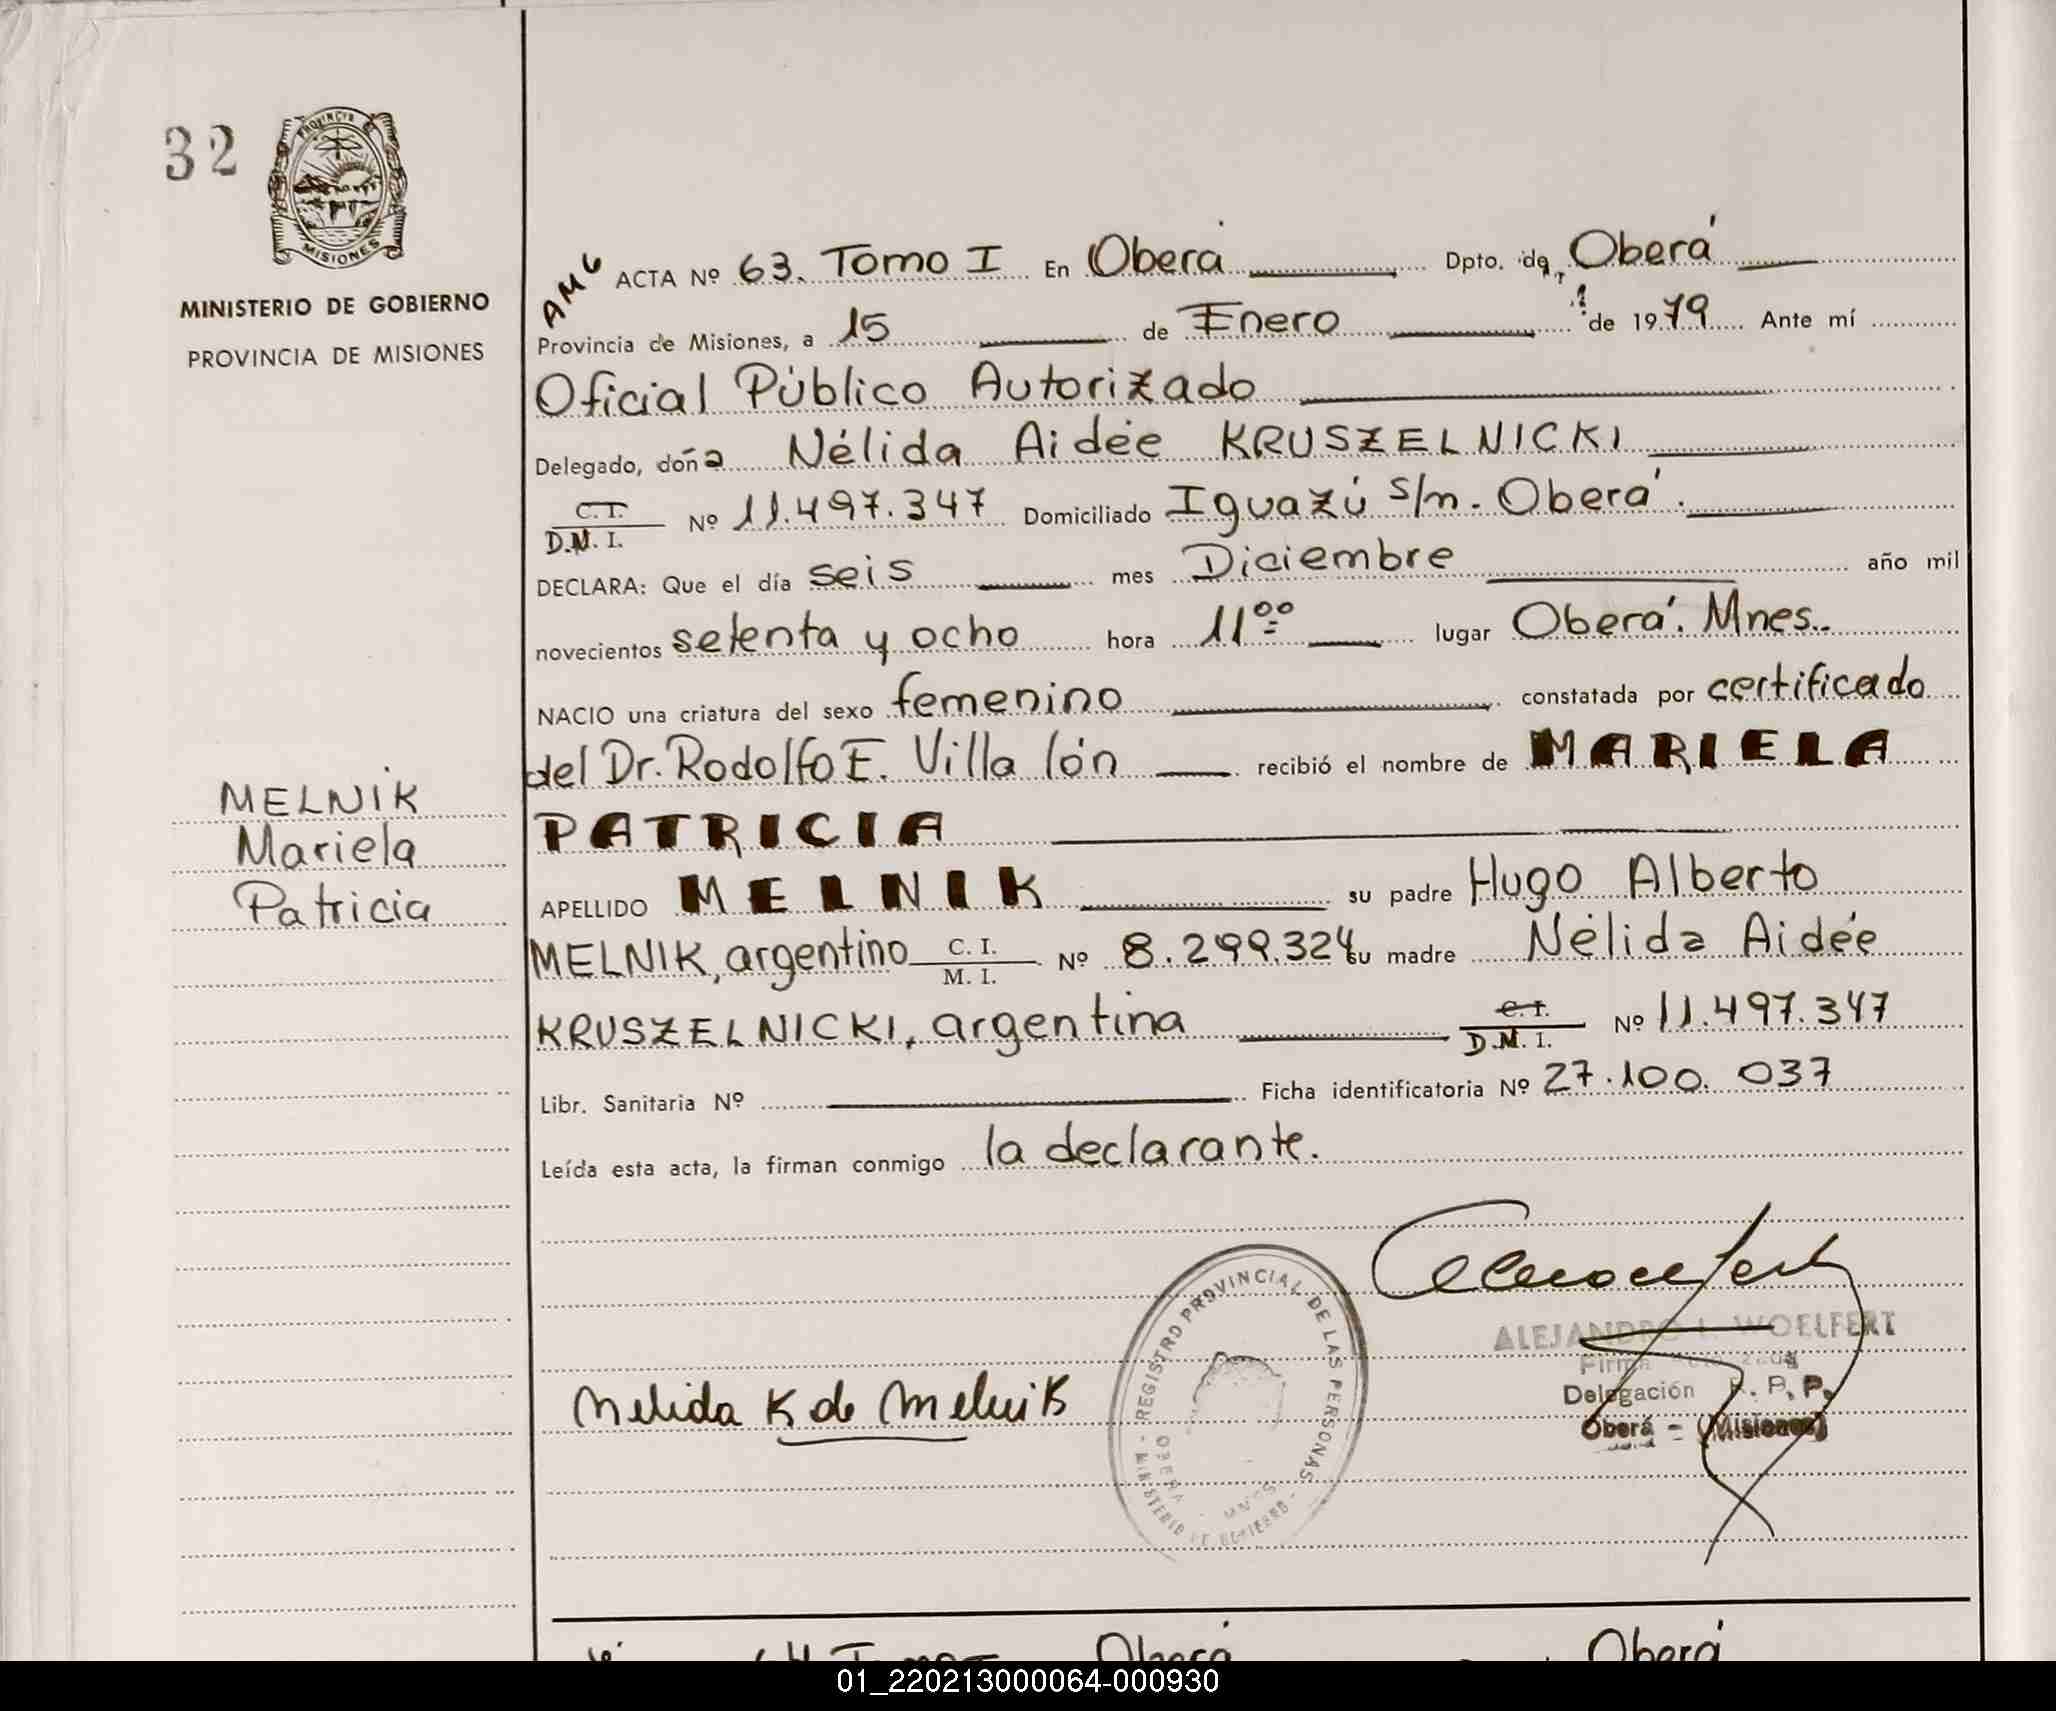 32
PROVINCIA DE
MISIONES
MINISTERIO DE GOBIERNO
PROVINCIA DE MISIONES
MELNIK
Mariela
Patricia
ACTA Nº 63. Tomo I En Oberá Dpto. de Oberá
Provincia de Misiones, a 15 de Enero de 1979 Ante mí
Oficial Público Autorizado
Delegado, doña Nélida Aidée KRUSZELNICKI
C.I.
D.M.I. Nº 11.497.347 Domiciliado Iguazú s/n. Oberá.
DECLARA: Que el día seis mes Diciembre año mil
novecientos setenta y ocho hora 11⁰⁰ lugar Oberá. Mnes.
NACIO una criatura del sexo femenino constatada por certificado
del Dr. Rodolfo E. Villalón recibió el nombre de MARIELA
PATRICIA
APELLIDO MELNIK su padre Hugo Alberto
MELNIK, argentino C. I. / M. I. Nº 8.299.324 su madre Nélida Aidée
KRUSZELNICKI, argentina C.I. / D.M.I. Nº 11.497.347
Libr. Sanitaria Nº Ficha identificatoria Nº 27.100.037
Leída esta acta, la firman conmigo la declarante.
Nelida K de Melnik
REGISTRO PROVINCIAL DE LAS PERSONAS
MINISTERIO DE GOBIERNO
OBERA MNES
ALEJANDRO L. WOELFERT
Firma
Delegación R. P. P.
Oberá - (Misiones)
Oberá Oberá
01_220213000064-000930